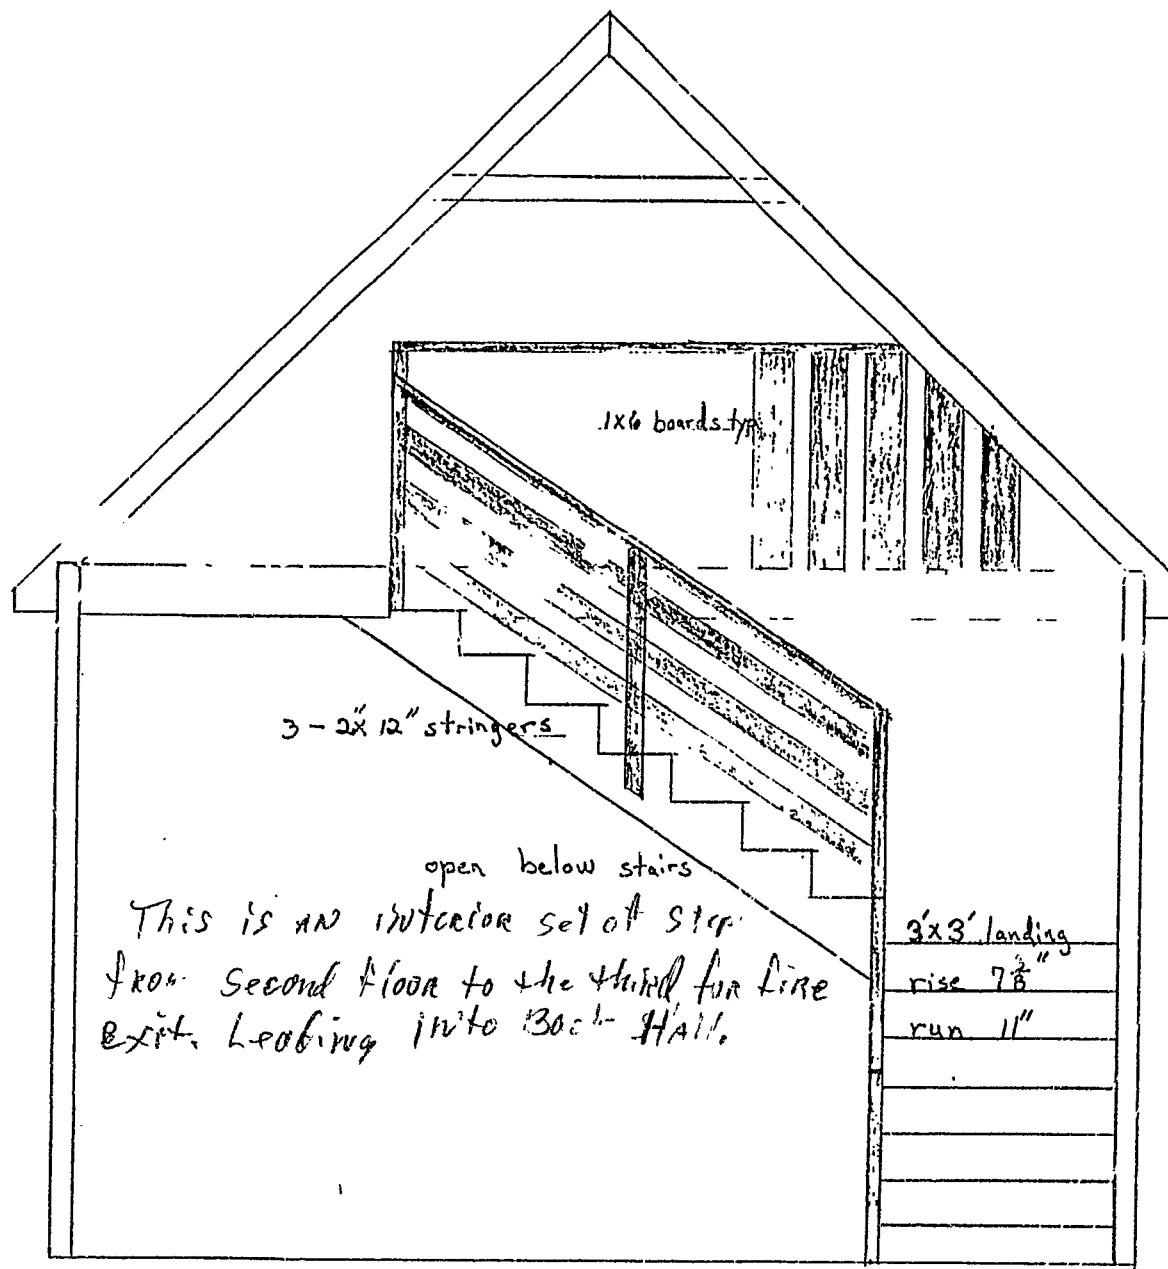 1x6 boards typ
3 - 2"x 12" stringers
open below stairs
This is an interior set of step
from second floor to the third for fire
exit. Leading into Back Hall.
3'x3' landing
rise 7 3/8"
run 11"